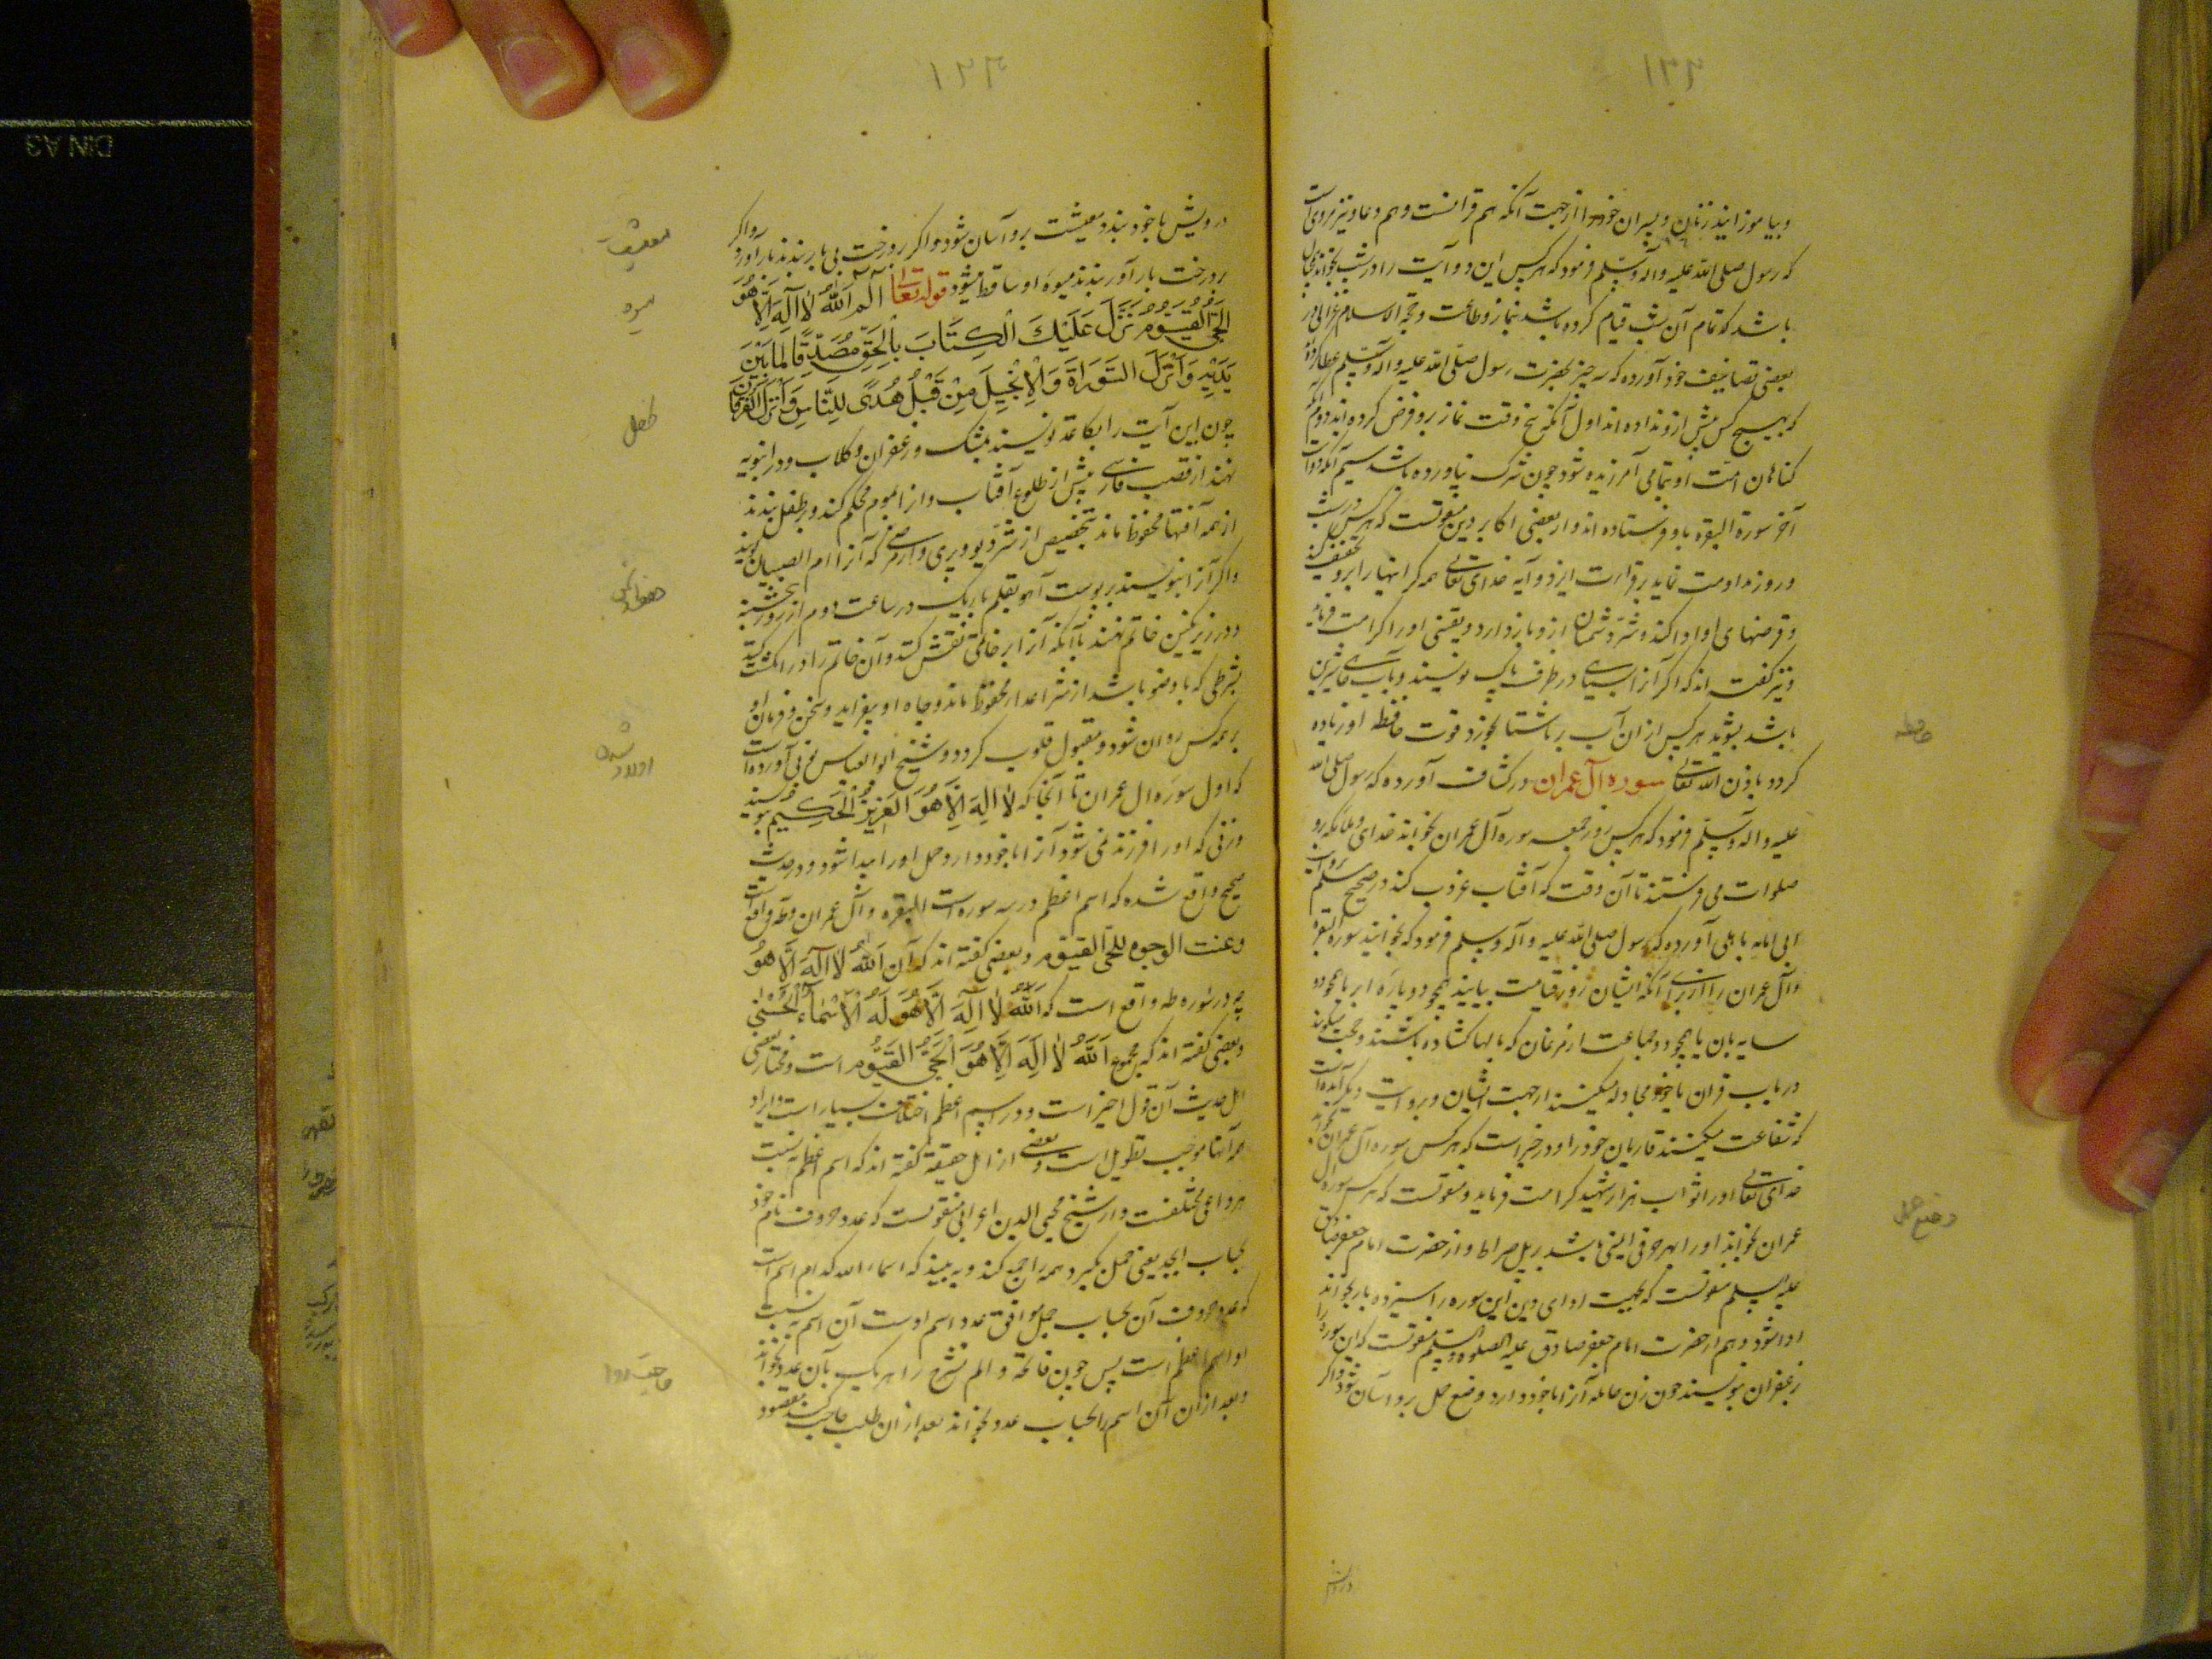 و بیاموزانید زنان و پسران خود را از جهت آنکه هم قرانست و هم دعا و نیز مرویست
که رسول صلی الله علیه واله وسلم فرمود که هر کس این دو آیت را در شب بخواند چنان
باشد که تمام آن شب قیام کرده باشد بنماز و طاعت و حجة الاسلام غزالی در
بعضی تصانیف خود آورده که سه چیز بحضرت رسول صلی الله علیه واله وسلم عطا کرده
که بهیچ کس پیش ازو نداده اند اول آنکه پنج وقت نماز برو فرض کرده اند دوم آنکه
کناهان امت او بتمامی آمرزیده شود چون شرک نیاورده باشد سیم آنکه دو آیت
آخر سورة البقره باو فرستاده اند و از بعضی اکابر دین منقولست که هر کس در شب
و روز مداومت نماید بر قراءت این دو آیه خدای تعالی همه کرانیها را برو تخفیف کند
و قرضهای او ادا کند و شر دشمنان ازو باز دارد و بغنی او را کرامت فرماید
و نیز کفته اند که اکر آنرا بسیاهی در ظرف پاک نویسند و بآب
باشد بشویند هر کس از ان آب بناشتا بخورد قوت حافظه او زیاده
کردد باذن الله تعالی سوره آل عمران در کشاف آورده که رسول صلی الله
علیه واله وسلم فرمود که هر کس روز جمعه سوره آل عمران بخواند خدای و ملائکه برو
صلوات می فرستند تا آن وقت که آفتاب غروب کند و در صحیح مسلم بروایت
ابی امامه باهلی آورده که رسول صلی الله علیه و آله وسلم فرمود که بخوانید سوره البقره
و آل عمران را از برای آنکه ایشان روز قیامت بیایند همچو دو پاره ابر یا همچو دو
سایه بان یا همچو دو جماعت از مرغان که بالها کشاده باشند و حجت میکویند
در باب قران با خود مجادله میکنند از جهت ایشان و بروایت دیکر آمده است
که شفاعت میکنند قاریان خود را و در خبر است که هر کس سوره آل عمران بخواند
خدای تعالی او را ثواب هزار شهید کرامت فرماید و منقولست که هر کس سوره آل
عمران بخواند او را بهر حرفی ایمنی باشد بر پل صراط و از حضرت امام جعفر صادق
علیه السلم منقولست که بجهت ادای دین این سوره را سیزده بار بخوانند
ادا شود و هم از حضرت امام جعفر صادق علیه الصلوة والسلم منقولست که این سوره را
بزعفران بنویسند چون زن حامله آنرا با خود دارد وضع حمل برو آسان شود و اکر
حافظه
وضع حمل
درویش
درویش با خود بندد معیشت برو آسان شود و اکر بر درخت بی بار بندند بار آورد و اکر
بر درخت بار آور بندند میوه او ساقط میشود قوله تعالی الم الله لا اله الا هو
الحی القیوم نزل علیك الکتاب بالحق مصدقا لما بین
یدیه و انزل التوراة و الانجیل من قبل هدی للناس و انزل الفرقان
چون این آیت را بکاغذ نویسند بمشک و زعفران و کلاب و در انبوبه
نهند از قصب فارسی پیش از طلوع آفتاب و از اموم محکم کند و بر طفل بندند
از همه آفتها محفوظ ماند بتخصیص از شر دیو و پری و مرضی که آنرا ام الصبیان کویند
و اکر آنرا بنویسند بر پوست آهو بقلم باریک در ساعت دوم از روز پنجشنبه
و در زیر نکین خاتم نهند یا آنکه آنرا بر خاتمی نقش کنند و آن خاتم را در انکشت کنند
بشرطی که با وضو باشد از شر اعدا محفوظ ماند و جاه او بیفزاید و سخن و فرمان او
بر همه کس روان شود و مقبول قلوب کردد و شیخ ابو العباس آورده است
که اول سوره ال عمران تا آنجا که لا اله الا هو العزیز الحکیم بنویسند
و زنی که او را فرزند نمی شود آنرا با خود دارد حمل او را پیدا شود و در حدیث
صحیح واقع شده که اسم اعظم در سه سوره است البقره و آل عمران و طه واقعست
وعنت الوجوه للحی القیوم و بعضی کفته اند که آن الله لا اله الا هو
چه در سوره طه واقع است که الله لا اله الا هو له الاسماء الحسنی
و بعضی کفته اند که مجموع الله لا اله الا هو الحی القیوم است و مختار بعضی
اهل حدیث آن قول اخیر است و در اسم اعظم اختلاف بسیار است و ایراد
همه آنها موجب تطویل است و بعضی از اهل حقیقة کفته اند که اسم اعظم به نسبت
هر داعی مختلفست و از شیخ محیی الدین اعرابی منقولست که عدد حروف نام خود
بحساب ابجد یعنی جمل بکیرد و همه را جمع کند و به بیند که اسماء الله کدام اسم است
که عدد حروف آن بحساب جمل موافق عدد اسم اوست آن اسم به نسبت
او اسم اعظم است پس چون فاتحة و الم نشرح را هر یک بآن عدد بخواند
و بعد از ان آن اسم را بحساب عدد بخواند بعد از ان طلب حاجت کند مقصود
معیشت
میوه
طفل
اولاد شدن
حاجت روا
DIN A3